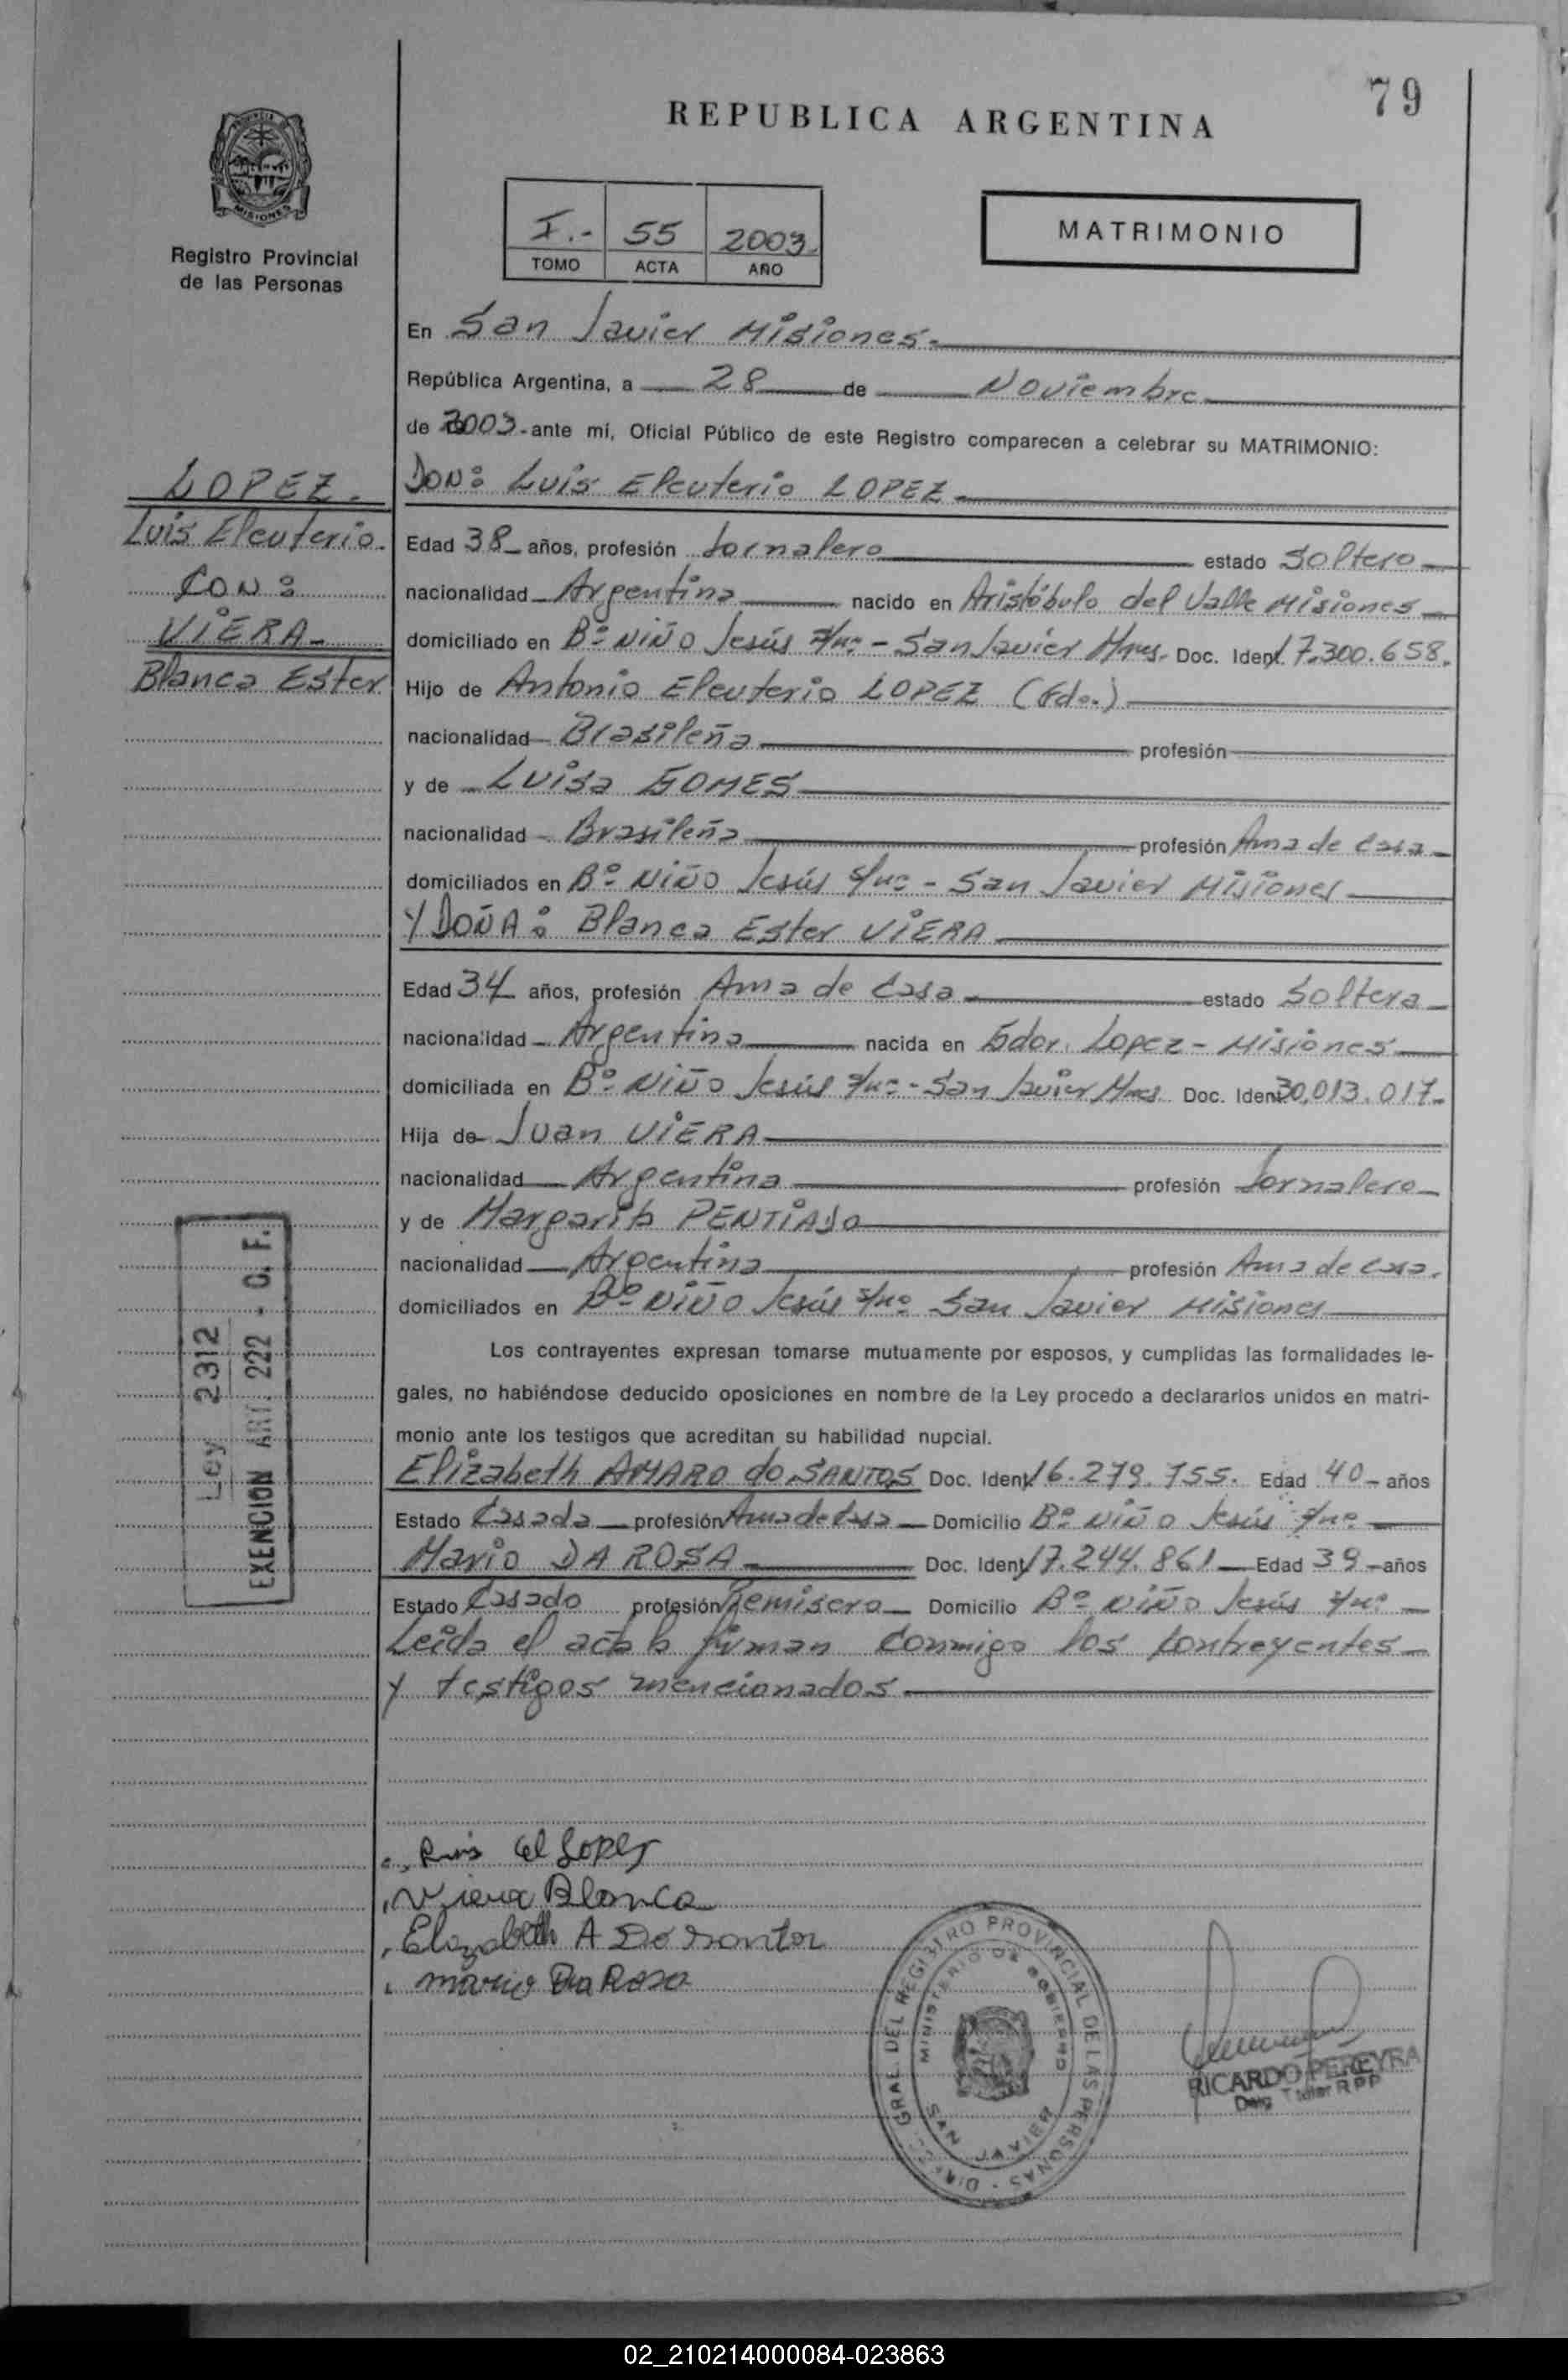 79
REPUBLICA ARGENTINA
MISIONES
Registro Provincial
de las Personas
I.- 55 2003
TOMO ACTA AÑO
MATRIMONIO
En San Javier Misiones.
República Argentina, a 28 de Noviembre
de 2003. ante mí, Oficial Público de este Registro comparecen a celebrar su MATRIMONIO:
LOPEZ.
Luis Eleuterio.
CON:
VIERA
Blanca Ester
DON: Luis Eleuterio LOPEZ
Edad 38 años, profesión Jornalero estado Soltero
nacionalidad Argentina nacido en Aristóbulo del Valle Misiones
domiciliado en Bº Niño Jesús s/nº - San Javier Mnes. Doc. Ident 17.300.658.
Hijo de Antonio Eleuterio LOPEZ (Fdo.)
nacionalidad Brasileña profesión
y de Luisa GOMES
nacionalidad Brasileña profesión Ama de Casa
domiciliados en Bº Niño Jesús s/nº - San Javier Misiones
Y DOÑA: Blanca Ester VIERA
Edad 34 años, profesión Ama de Casa estado Soltera
nacionalidad Argentina nacida en Gdor. Lopez - Misiones
domiciliada en Bº Niño Jesús s/nº - San Javier Mnes Doc. Iden 30.013.017.
Hija de Juan VIERA
nacionalidad Argentina profesión Jornalero
y de Margarita PENTIADO
nacionalidad Argentina profesión Ama de casa.
domiciliados en Bº Niño Jesús s/nº San Javier Misiones
Los contrayentes expresan tomarse mutuamente por esposos, y cumplidas las formalidades le-
gales, no habiéndose deducido oposiciones en nombre de la Ley procedo a declararlos unidos en matri-
monio ante los testigos que acreditan su habilidad nupcial.
Elizabeth AMARO do SANTOS Doc. Ident 16.279.755. Edad 40 años
Estado Casada profesión Ama de Casa Domicilio Bº Niño Jesús s/nº
Mario DA ROSA Doc. Ident 17.244.861 Edad 39 años
Estado Casado profesión Remisero Domicilio Bº Niño Jesús s/nº
Leída el acta la firman conmigo los contreyentes
y testigos mencionados
Ley 2312
EXENCION ART. 222 - C. F.
Luis El Lopes
Viera Blanca
Elizabeth A Do Santos
Mario Da Rosa
DIREC. GRAL. DEL REGISTRO PROVINCIAL DE LAS PERSONAS
MINISTERIO DE GOBIERNO
SAN JAVIER
RICARDO PEREYRA
Deleg. Titular R P P
02_210214000084-023863